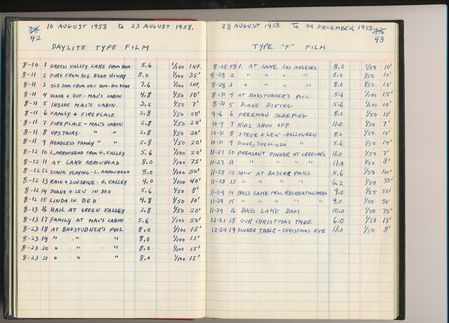 42
10 AUGUST 1958 to 23 AUGUST 1958.
DAYLITE TYPE FILM
8-10 1 GREEN VALLEY LAKE FROM DAM 5.6 1/100 INF.
8-11 2 FIRST FROM BIG BEAR HIWAY 8.0 1/100 35'
8-11 3 OLD DAM FROM NEW DAM - BIG BEAR 7.6 1/100 INF.
8-11 4 DIANE & DOT - MAC'S CABIN 4.8 1/50 10'
8-11 5 INSIDE MAC'S CABIN. 3.2 1/50 7'
8-11 6 FAMILY & FIREPLACE 2.8 1/50 20'
8-11 7 FIREPLACE - MAC'S CABIN 2.8 1/50 20'
8-11 8 UPSTAIRS- " " 2.8 1/50 20'
8-11 9 HEADLESS FAMILY " " 2.8 1/50 20'
8-12 10 L. ARROWHEAD FROM G. VALLEY 5.6 1/100 20'
8-12 11 AT LAKE ARROWHEAD 8.0 1/100 75'
8-12 12 DIANE PLAYING - L. ARROWHEAD 8.0 1/100 50'
8-12 13 RAIN & SUNSHINE - G. VALLEY 4.0 1/100 40'
8-12 14 DIANE & LEW IN BED 5.6 1/50 8'
8-12 15 LINDA IN BED 4.8 1/50 10'
8-13 16 HAIL AT GREEN VALLEY 2.8 1/50 20'
8-13 17 FAMILY AT MAC'S CABIN. 5.6 1/100 50'
8-23 18 AT BABSTUBNER'S POOL 8.0 1/100 15'
8-23 19 " " " 8.0 1/100 15'
8-23 20 " " " 8.0 1/100 15'
8-23 21 " " " 8.0 1/100 15'
28 AUGUST 1958 TO 24 DECEMBER 1958
43
TYPE "F" FILM
8-28-58 1. AT LAKE LOS ANGELES 8.0 1/50 10'
8-28 2 " " " " 8.0 1/50 10'
8-28 3 " " " " 8.0 1/50 10'
8-31 4 AT BABSTUBNER'S POOL 5.6 1/100 15'
8-31 5 DIANE DIVING 5.6 1/100 10'
9-6 6 FREEMAN SLEEPING 8.0 1/50 10'
10-4 7 KIDS SHOW OFF 11.0 1/50 7'
10-31 8 STEVE & LEW - HALLOWEEN 8.0 1/50 10'
10-31 9 5.6 1/50 14'
11-27 10 PHEASANT DINNER AT 11.0 1/50 7'
11-27 11 " " " 11.0 1/50 8'
11-28 12 SNOW AT BADGER PASS 5.6 1/50 100'
11-28 13 " " " " 6.2 1/50 50'
11-29 14 BASS LAKE FROM RECREATION AREA 9.0 50'
11-29 15 " " " " " 9.0 1/50 50'
11-29 16 BASS LAKE DAM 10.0 1/50 75'
12-21 18 OUR CHRISTMAS TREE 6.0 1/50 13'
12-24 19 DINNER TABLE - CHRISTMAS EVE 11.0 1/50 8'